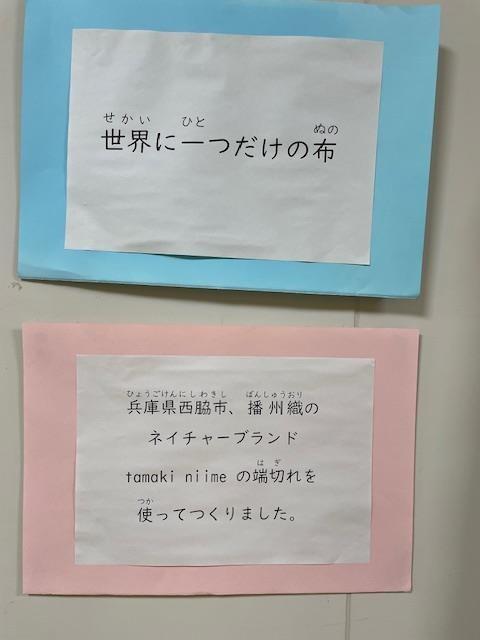 せかい ひと ぬの
世界に一つだけの布
ひょうごけんにしわきし ばんしゅうおり
兵庫県西脇市、播州織の
ネイチャーブランド
は ぎ
tamaki niime の端切れを
つか
使ってつくりました。